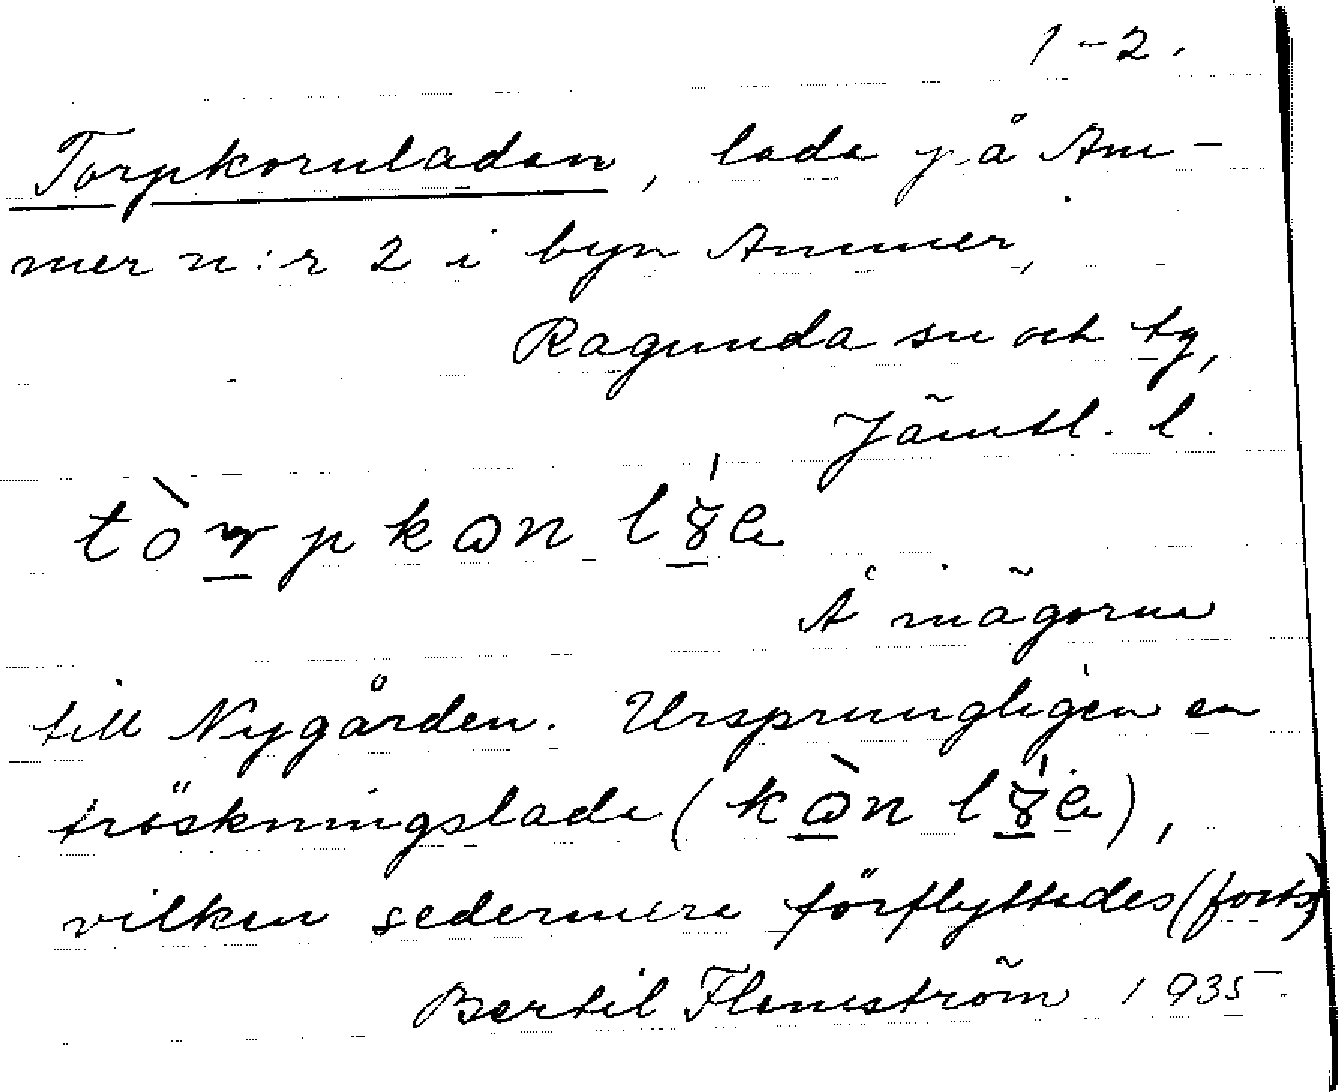 1-2.
Torpkornladan, lada på Am-
mer n:r 2 i byn Ammer,
Ragunda sn och tg,
Jämtl. l.
Å mägorna
till Nygården. Ursprungligen en
tröskningslada (
vilken sedermera förflyttades (forts)
Bertil Flemström 1935.